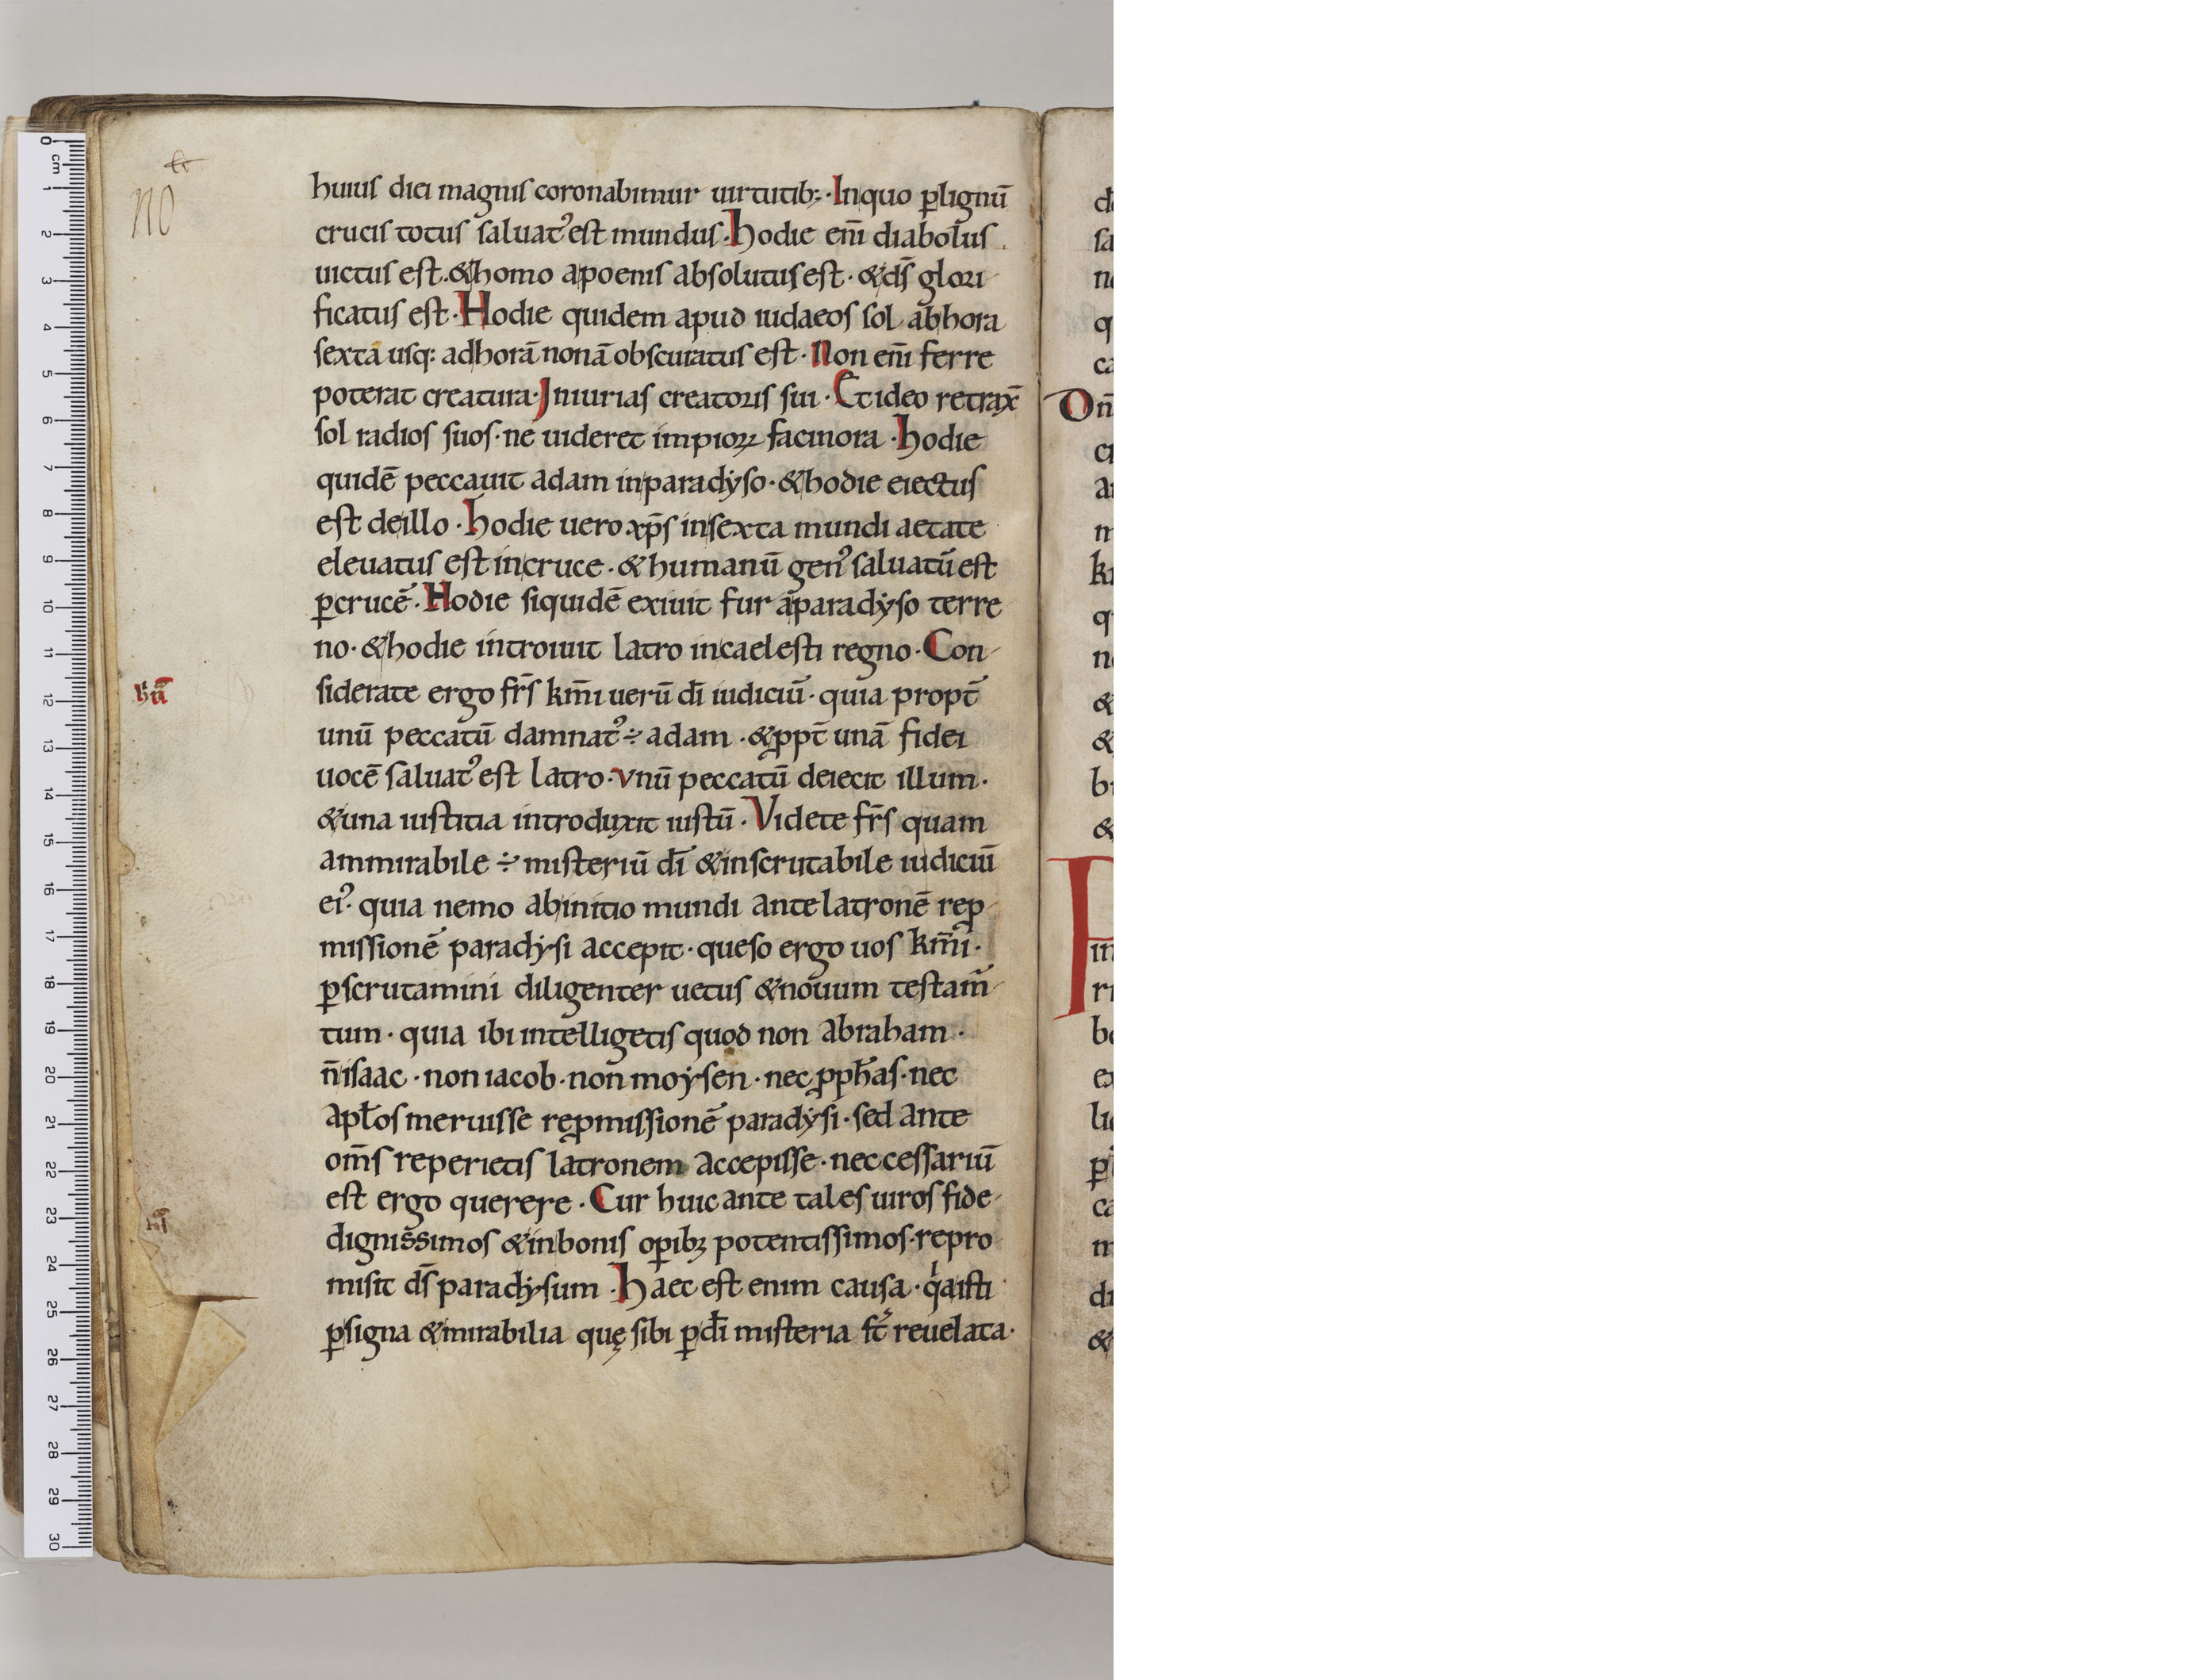 huius diei magnis coronabimur uirtutib;· Inquo ꝑlignū
crucis totus saluatꝰest mundus. hodie eni̅ diabolus
uictus est. &homo apoenis absolutus est · &ds̅ glori-
ficatus est · Hodie quidem apud iudaeos sol abhora
sexta usq: adhorā nonā obscuratus est · Non eni̅ ferre
poterat creatura· Iniurias creatoris sui · Et ideo retrax̅
sol radios suos· ne uideret impioꝝ facinora · hodie
quidē peccauit adam inparadẏso · &hodie eiectus
est deillo · hodie uero xp̅s insexta mundi aetate
eleuatus est incruce · &humanū genꝰ saluatū est
ꝑcrucē · Hodie siquidē exiuit fur aparadẏso terre
no · &hodie introiuit latro incaelesti regno · Con-
siderate ergo fr̅s km̅i uerū di̅ iudiciū · quia propt̅
unū peccatū damnatꝰ ÷ adam · &ꝓpt̅ unā fidei
uocē saluatꝰ est latro · vnū peccatū deiecit illum ·
&una iustitia introduxit iustū · Videte fr̅s quam
ammirabile ÷ misteriū di̅ &inscrutabile iudiciū
eiꝰ · quia nemo abinitio mundi ante latronē reꝓ
missionē paradẏsi accepit · queso ergo uos km̅i ·
ꝑscrutamini diligenter uetus &nouum testam̅-
tum · quia ibi intelligetis quod non abraham ·
n̅ isaac · non iacob · non moẏsen · nec ꝓph̅as · nec
apl̅os meruisse reꝓmissionē paradẏsi · sed ante
om̅s reperietis latronem accepisse · neccessariū
est ergo querere · Cur huic ante tales uiros fide-
dignissimos &inbonis oꝑibꝫ potentissimos · repro
misit ds̅ paradẏsum · haec est enim causa · qͥa isti
ꝑsigna &mirabilia quę sibi ꝑdi̅ misteria st̅ reuelata ·